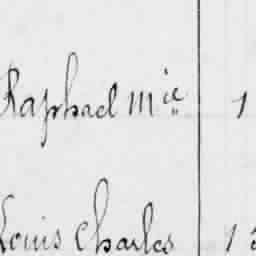 Raphael Mie 1
Louis Charles 1